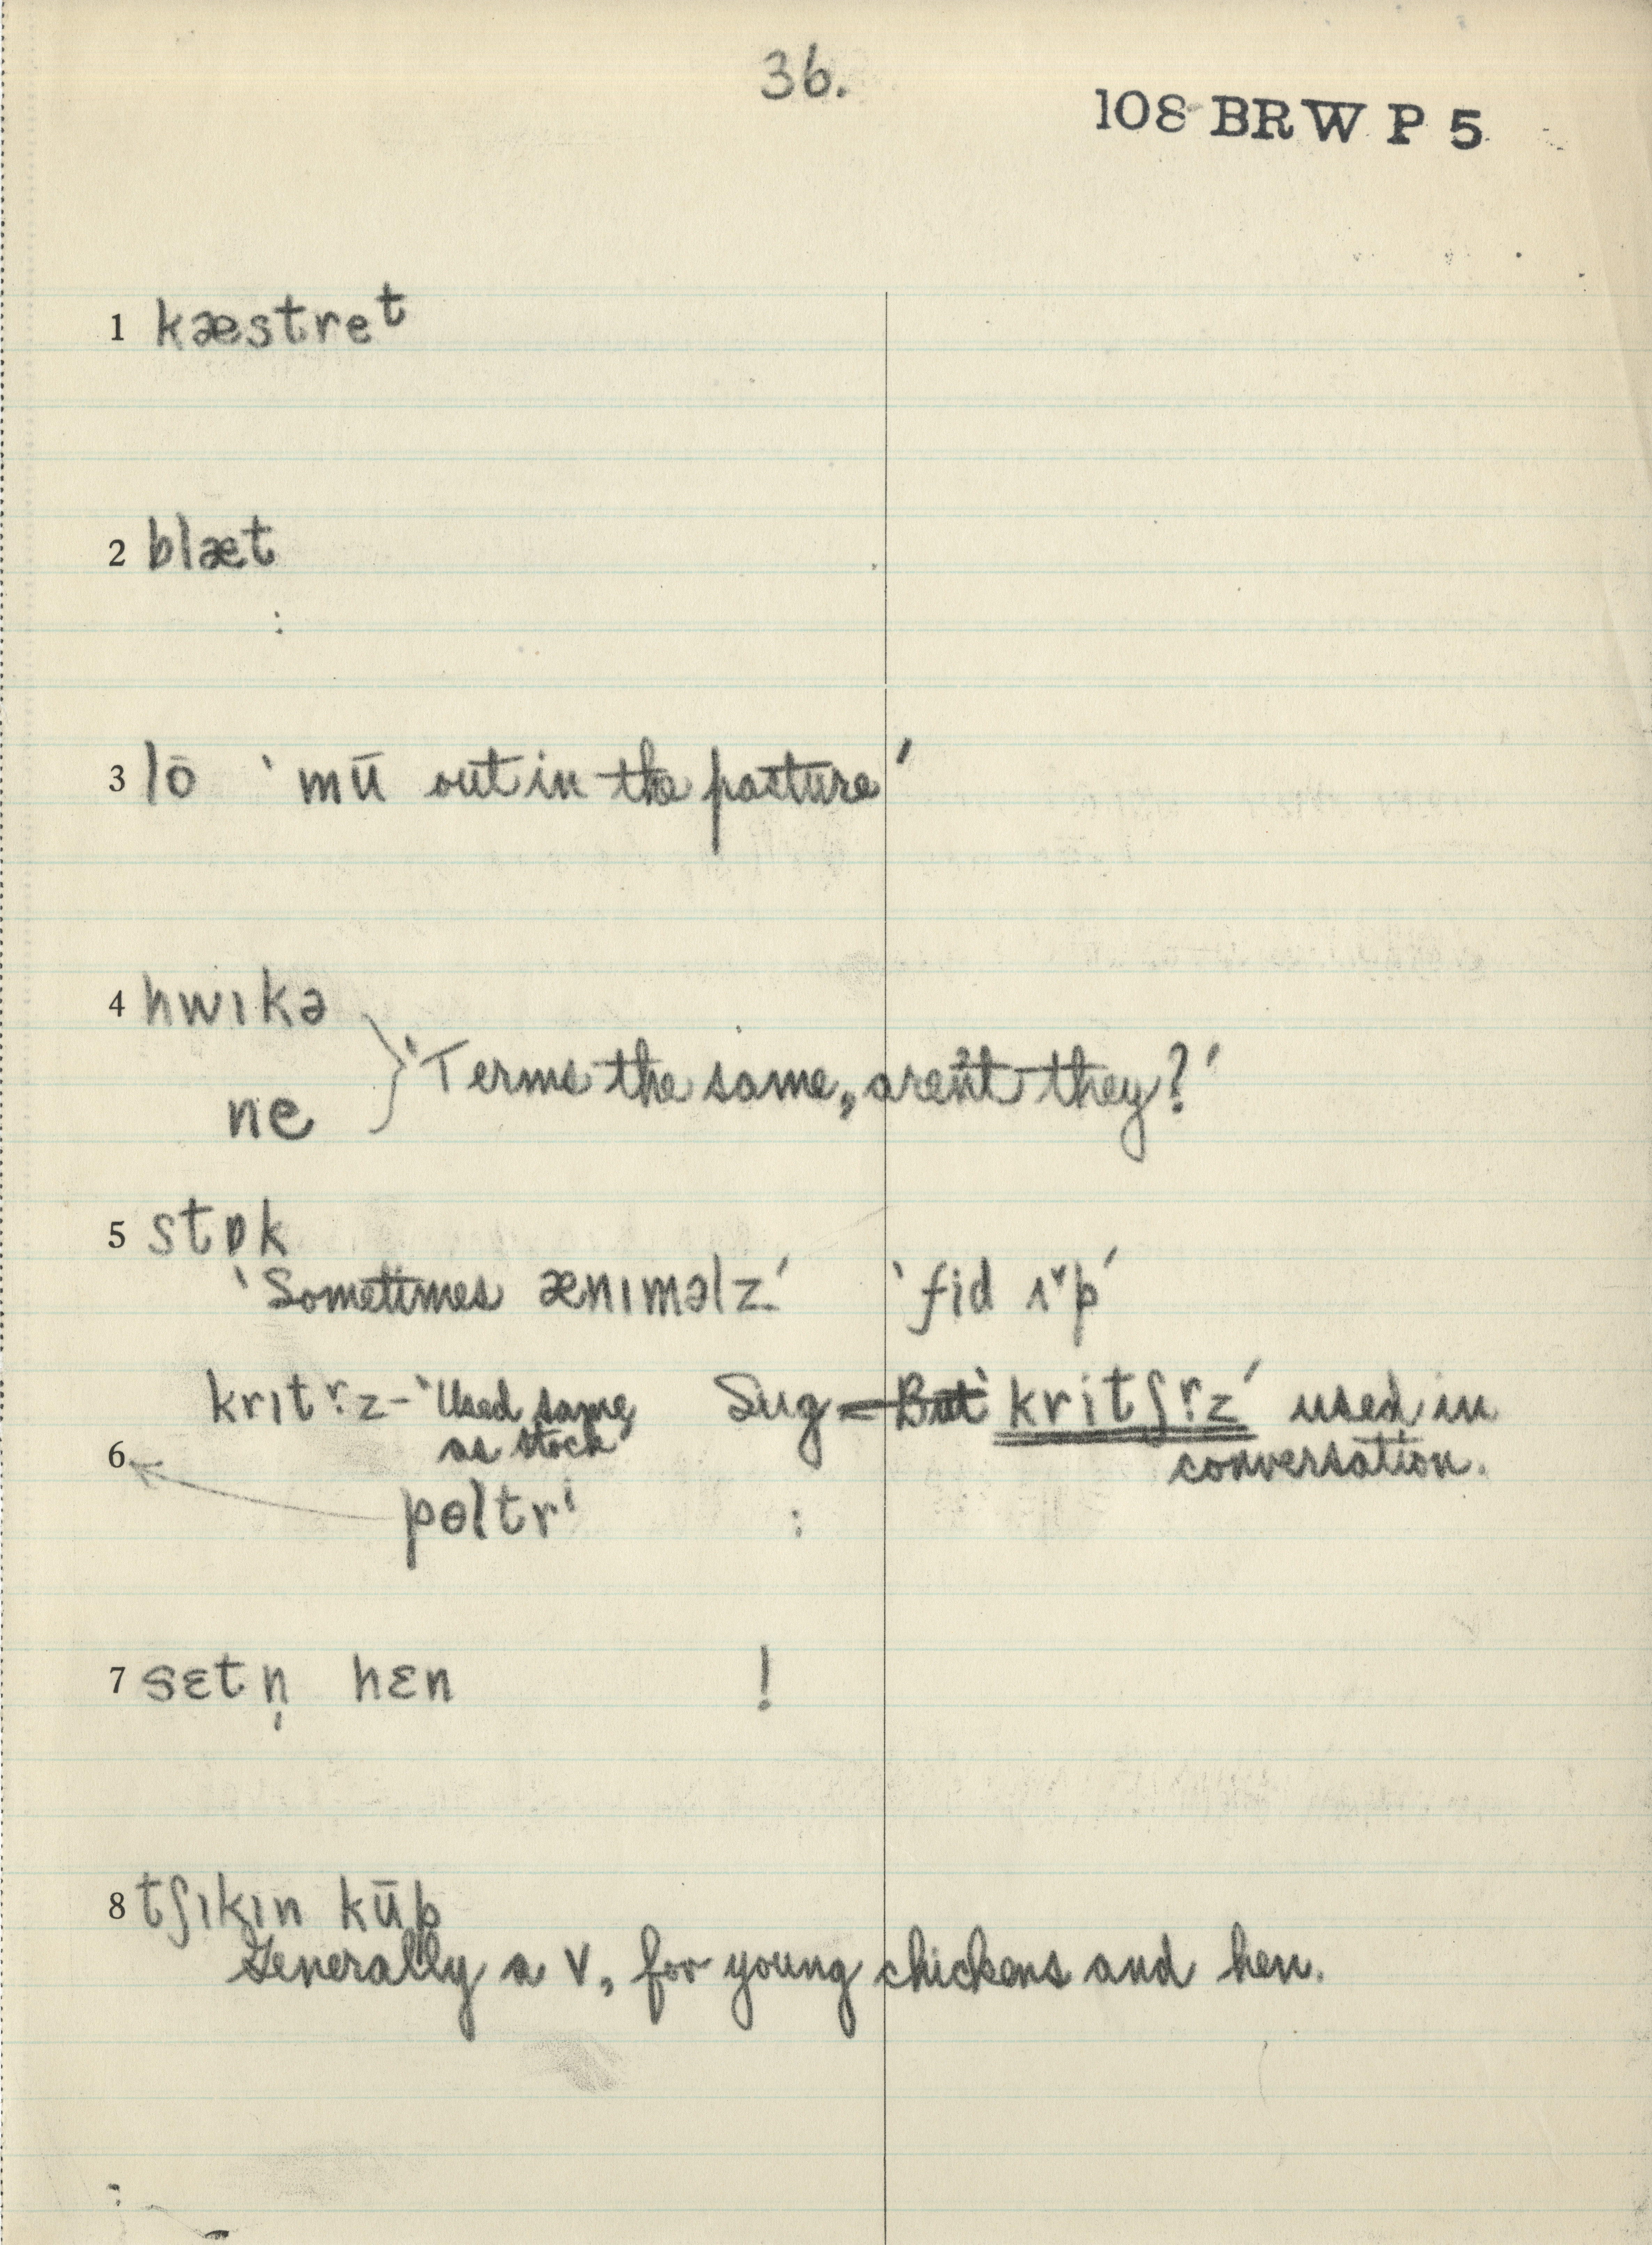 36.
108 BRW P 5
1 kæstreᵗ
2 blæt
3 lō ‵mū out in the pasture′
4 hwɪkə
ne } ‵Terms the same, aren't they?′
5 stɒk
‵Sometimes ænɪməlz′ ‵fid
krɪtɚz - ‵Used same as stock′ Sug = But ‵kritʃɚz′ used in conversation.
6 pɵltrⁱ :
7 sɛtn̩ hɛn !
8 tʃɪkɪn kūp
Generally a V, for young chickens and hen.